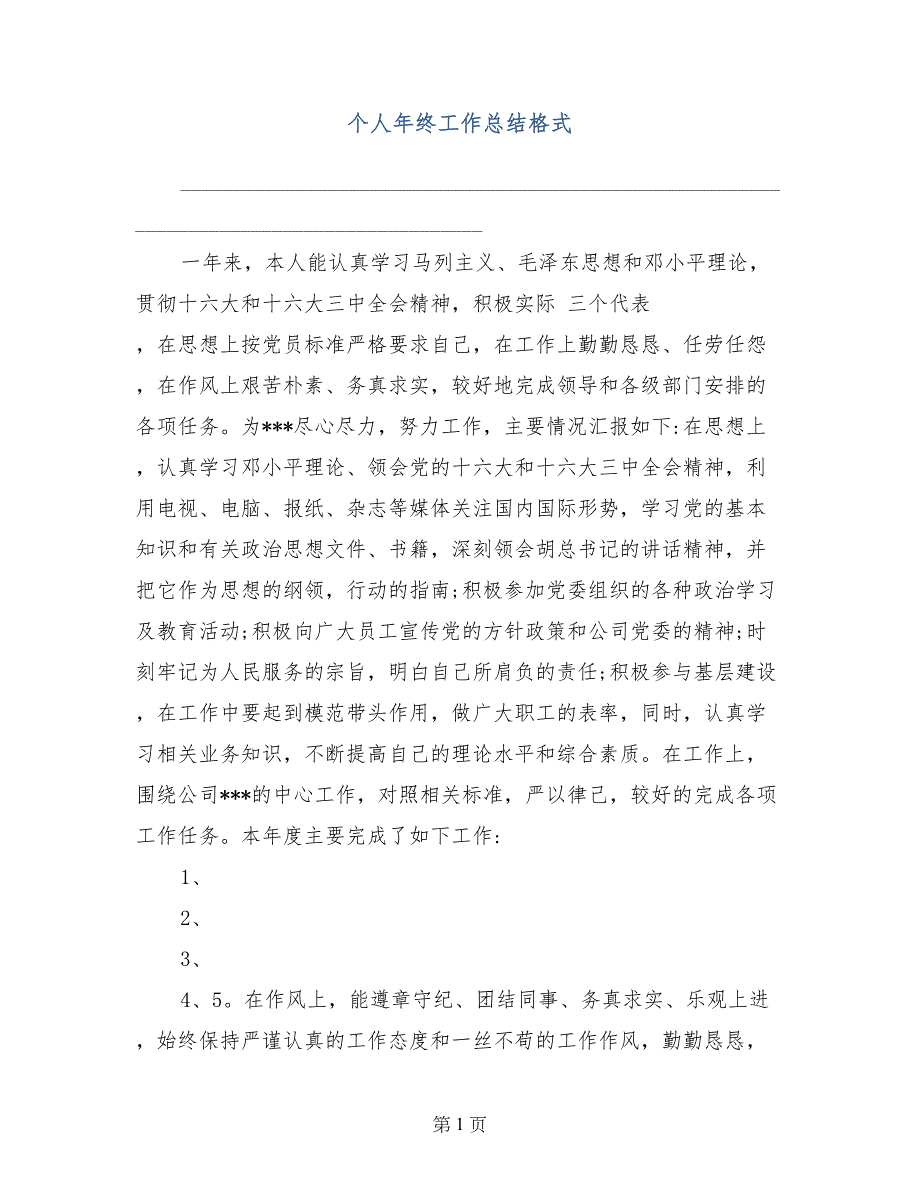 个人年终工作总结格式
____________________________________________________________
___________________________________
一年来，本人能认真学习马列主义、毛泽东思想和邓小平理论，
贯彻十六大和十六大三中全会精神，积极实际 三个代表
，在思想上按党员标准严格要求自己，在工作上勤勤恳恳、任劳任怨
，在作风上艰苦朴素、务真求实，较好地完成领导和各级部门安排的
各项任务。为***尽心尽力，努力工作，主要情况汇报如下:在思想上
，认真学习邓小平理论、领会党的十六大和十六大三中全会精神，利
用电视、电脑、报纸、杂志等媒体关注国内国际形势，学习党的基本
知识和有关政治思想文件、书籍，深刻领会胡总书记的讲话精神，并
把它作为思想的纲领，行动的指南;积极参加党委组织的各种政治学习
及教育活动;积极向广大员工宣传党的方针政策和公司党委的精神;时
刻牢记为人民服务的宗旨，明白自己所肩负的责任;积极参与基层建设
，在工作中要起到模范带头作用，做广大职工的表率，同时，认真学
习相关业务知识，不断提高自己的理论水平和综合素质。在工作上，
围绕公司***的中心工作，对照相关标准，严以律己，较好的完成各项
工作任务。本年度主要完成了如下工作:
1、
2、
3、
4、5。在作风上，能遵章守纪、团结同事、务真求实、乐观上进
，始终保持严谨认真的工作态度和一丝不苟的工作作风，勤勤恳恳，
第 1 页